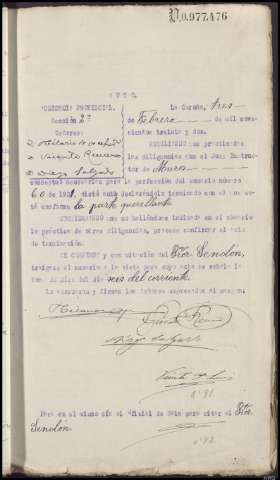 D.0.977.476
A U T O.
AUDIENCIA PROVINCIAL.
Sección 2ª
Señores:
D. Hilario
D. Vicente
D. Diego Salgado
La Coruña, tres
de Febrero de mil nove-
cientos treinta y dos.
RESULTANDO que practicadas
las diligencias que el Juez Instruc-
tor de Muros
conceptuó necesarias para la perfección del sumario número
60 de 1931, dictó auto declarándole terminado con el que es-
tá conforme la parte querellante
CONSIDERANDO que no hallándose indicada en el sumario
la práctica de otras diligencias, procede confirmar el auto
de terminación.
SE CONFIRMA y con citación del Flor Senolón,
tráigase el sumario a la vista para cuyo acto se señala la
hora de diez del día seis del corriente.
Lo mandaron y firman los Señores expresados al margen:
Diego Salgado
Nº 91
Pase en el mismo día al oficial de Sala para citar al Flor
Senolón.
Nº 92